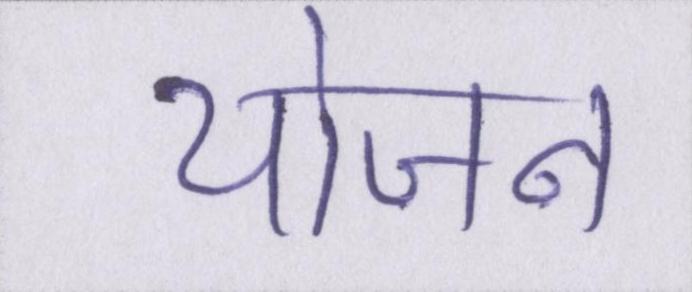 योजन